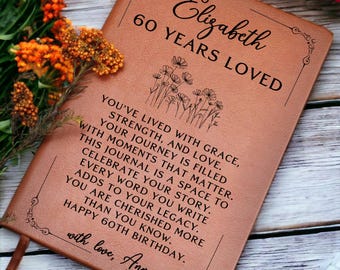 Elizabeth
60 YEARS LOVED
YOU'VE LIVED WITH GRACE,
STRENGTH, AND LOVE.
YOUR JOURNEY IS FILLED
WITH MOMENTS THAT MATTER.
THIS JOURNAL IS A SPACE TO
CELEBRATE YOUR STORY.
EVERY WORD YOU WRITE
ADDS TO YOUR LEGACY.
YOU ARE CHERISHED MORE
THAN YOU KNOW.
HAPPY 60TH BIRTHDAY.
with love, Ann